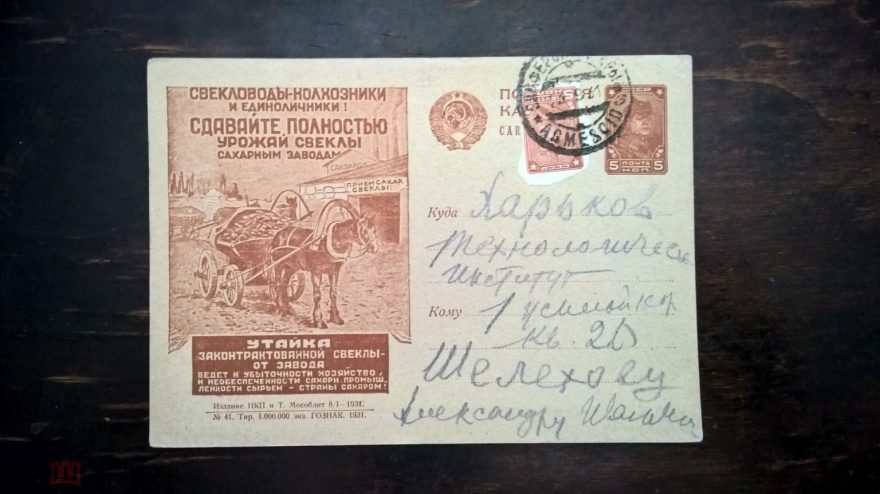 СВЕКЛОВОДЫ-КОЛХОЗНИКИ
И ЕДИНОЛИЧНИКИ!
СДАВАЙТЕ ПОЛНОСТЬЮ
УРОЖАЙ СВЕКЛЫ
САХАРНЫМ ЗАВОДАМ
САХЗАВОД
ПРИЕМ САХАР.
СВЕКЛЫ
УТАЙКА
ЗАКОНТРАКТОВАННОЙ СВЕКЛЫ-
ОТ ЗАВОДА
ВЕДЕТ К УБЫТОЧНОСТИ ХОЗЯЙСТВО,
И НЕОБЕСПЕЧЕННОСТИ САХАРН. ПРОМЫШ
ЛЕННОСТИ СЫРЬЕМ - СТРАНЫ САХАРОМ!
Издание НКП и Т. Мособлит 8/I—1931.
№ 41. Тир. 1.000.000 экз. ГОЗНАК. 1931.
ПО
КА
CAR
СССР
AGMESCID
СССР
5 ПОЧТА 5
КОП
Куда Харьков
Технологическ
институт
Кому 1
кв. 26
Шелехову
Александру